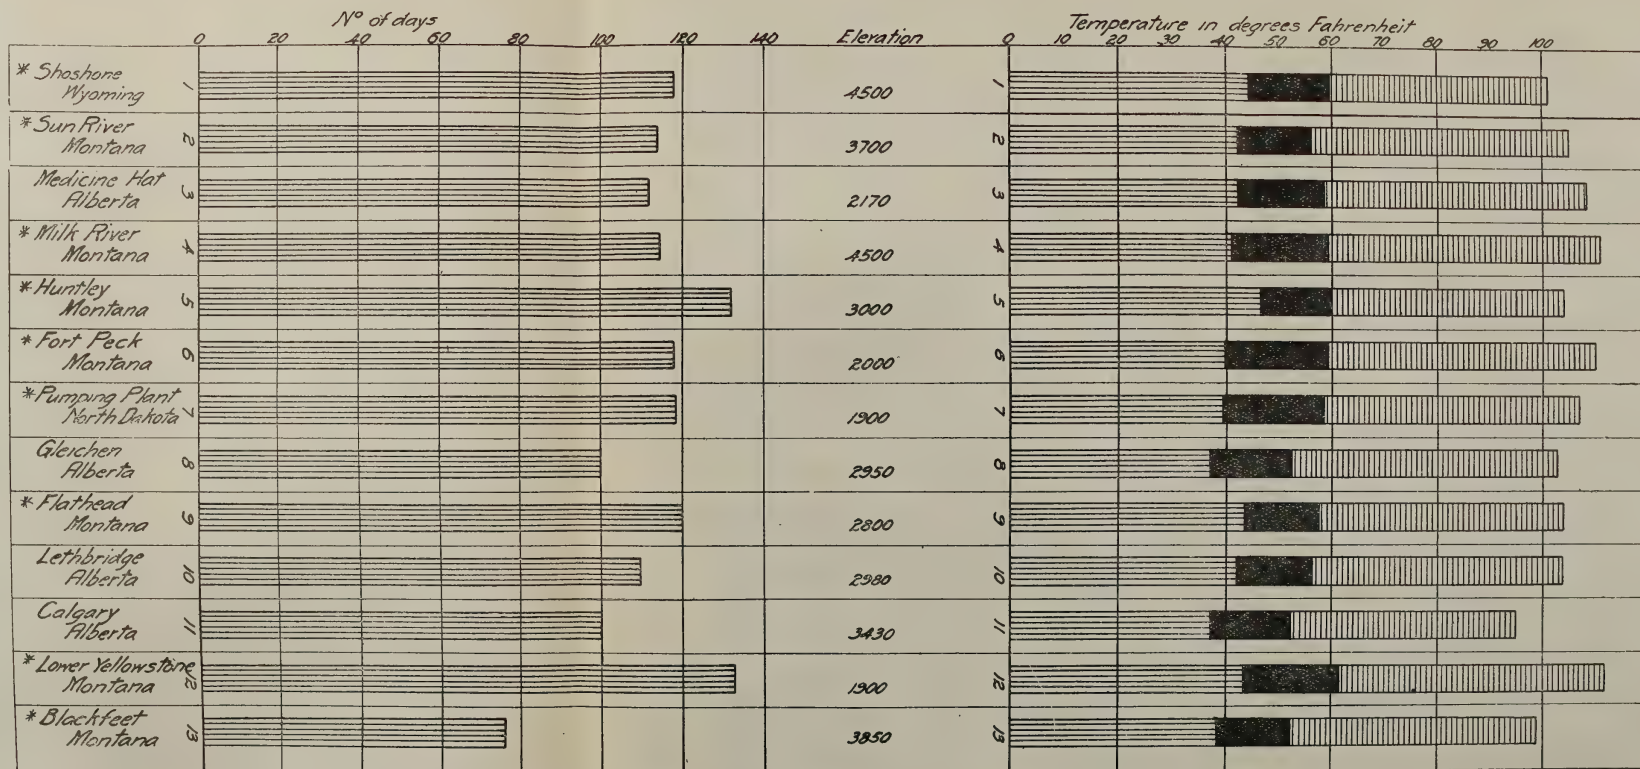 Nº of days
Temperature in degrees Fahrenheit
0 20 40 60 80 100 120 140 Eleration 0 10 20 30 40 50 60 70 80 90 100
* Shoshone
Wyoming 1 4500 1
* Sun River
Montana 2 3700 2
Medicine Hat
Alberta 3 2170 3
* Milk River
Montana 4 4500 4
* Huntley
Montana 5 3000 5
* Fort Peck
Montana 6 2000 6
* Pumping Plant
North Dakota 7 1900 7
Gleichen
Alberta 8 2950 8
* Flathead
Montana 9 2800 9
Lethbridge
Alberta 10 2980 10
Calgary
Alberta 11 3430 11
* Lower Yellowstone
Montana 12 1900 12
* Blackfeet
Montana 13 3850 13